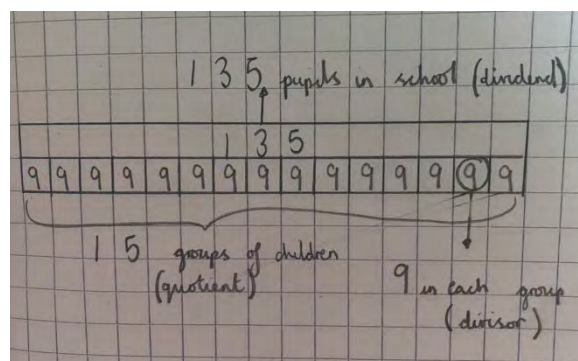 1 3 5 pupils in school (dividend)
1 3 5
9 9 9 9 9 9 9 9 9 9 9 9 9 9 9
1 5 groups of children
(quotient)
9 in each group
(divisor)